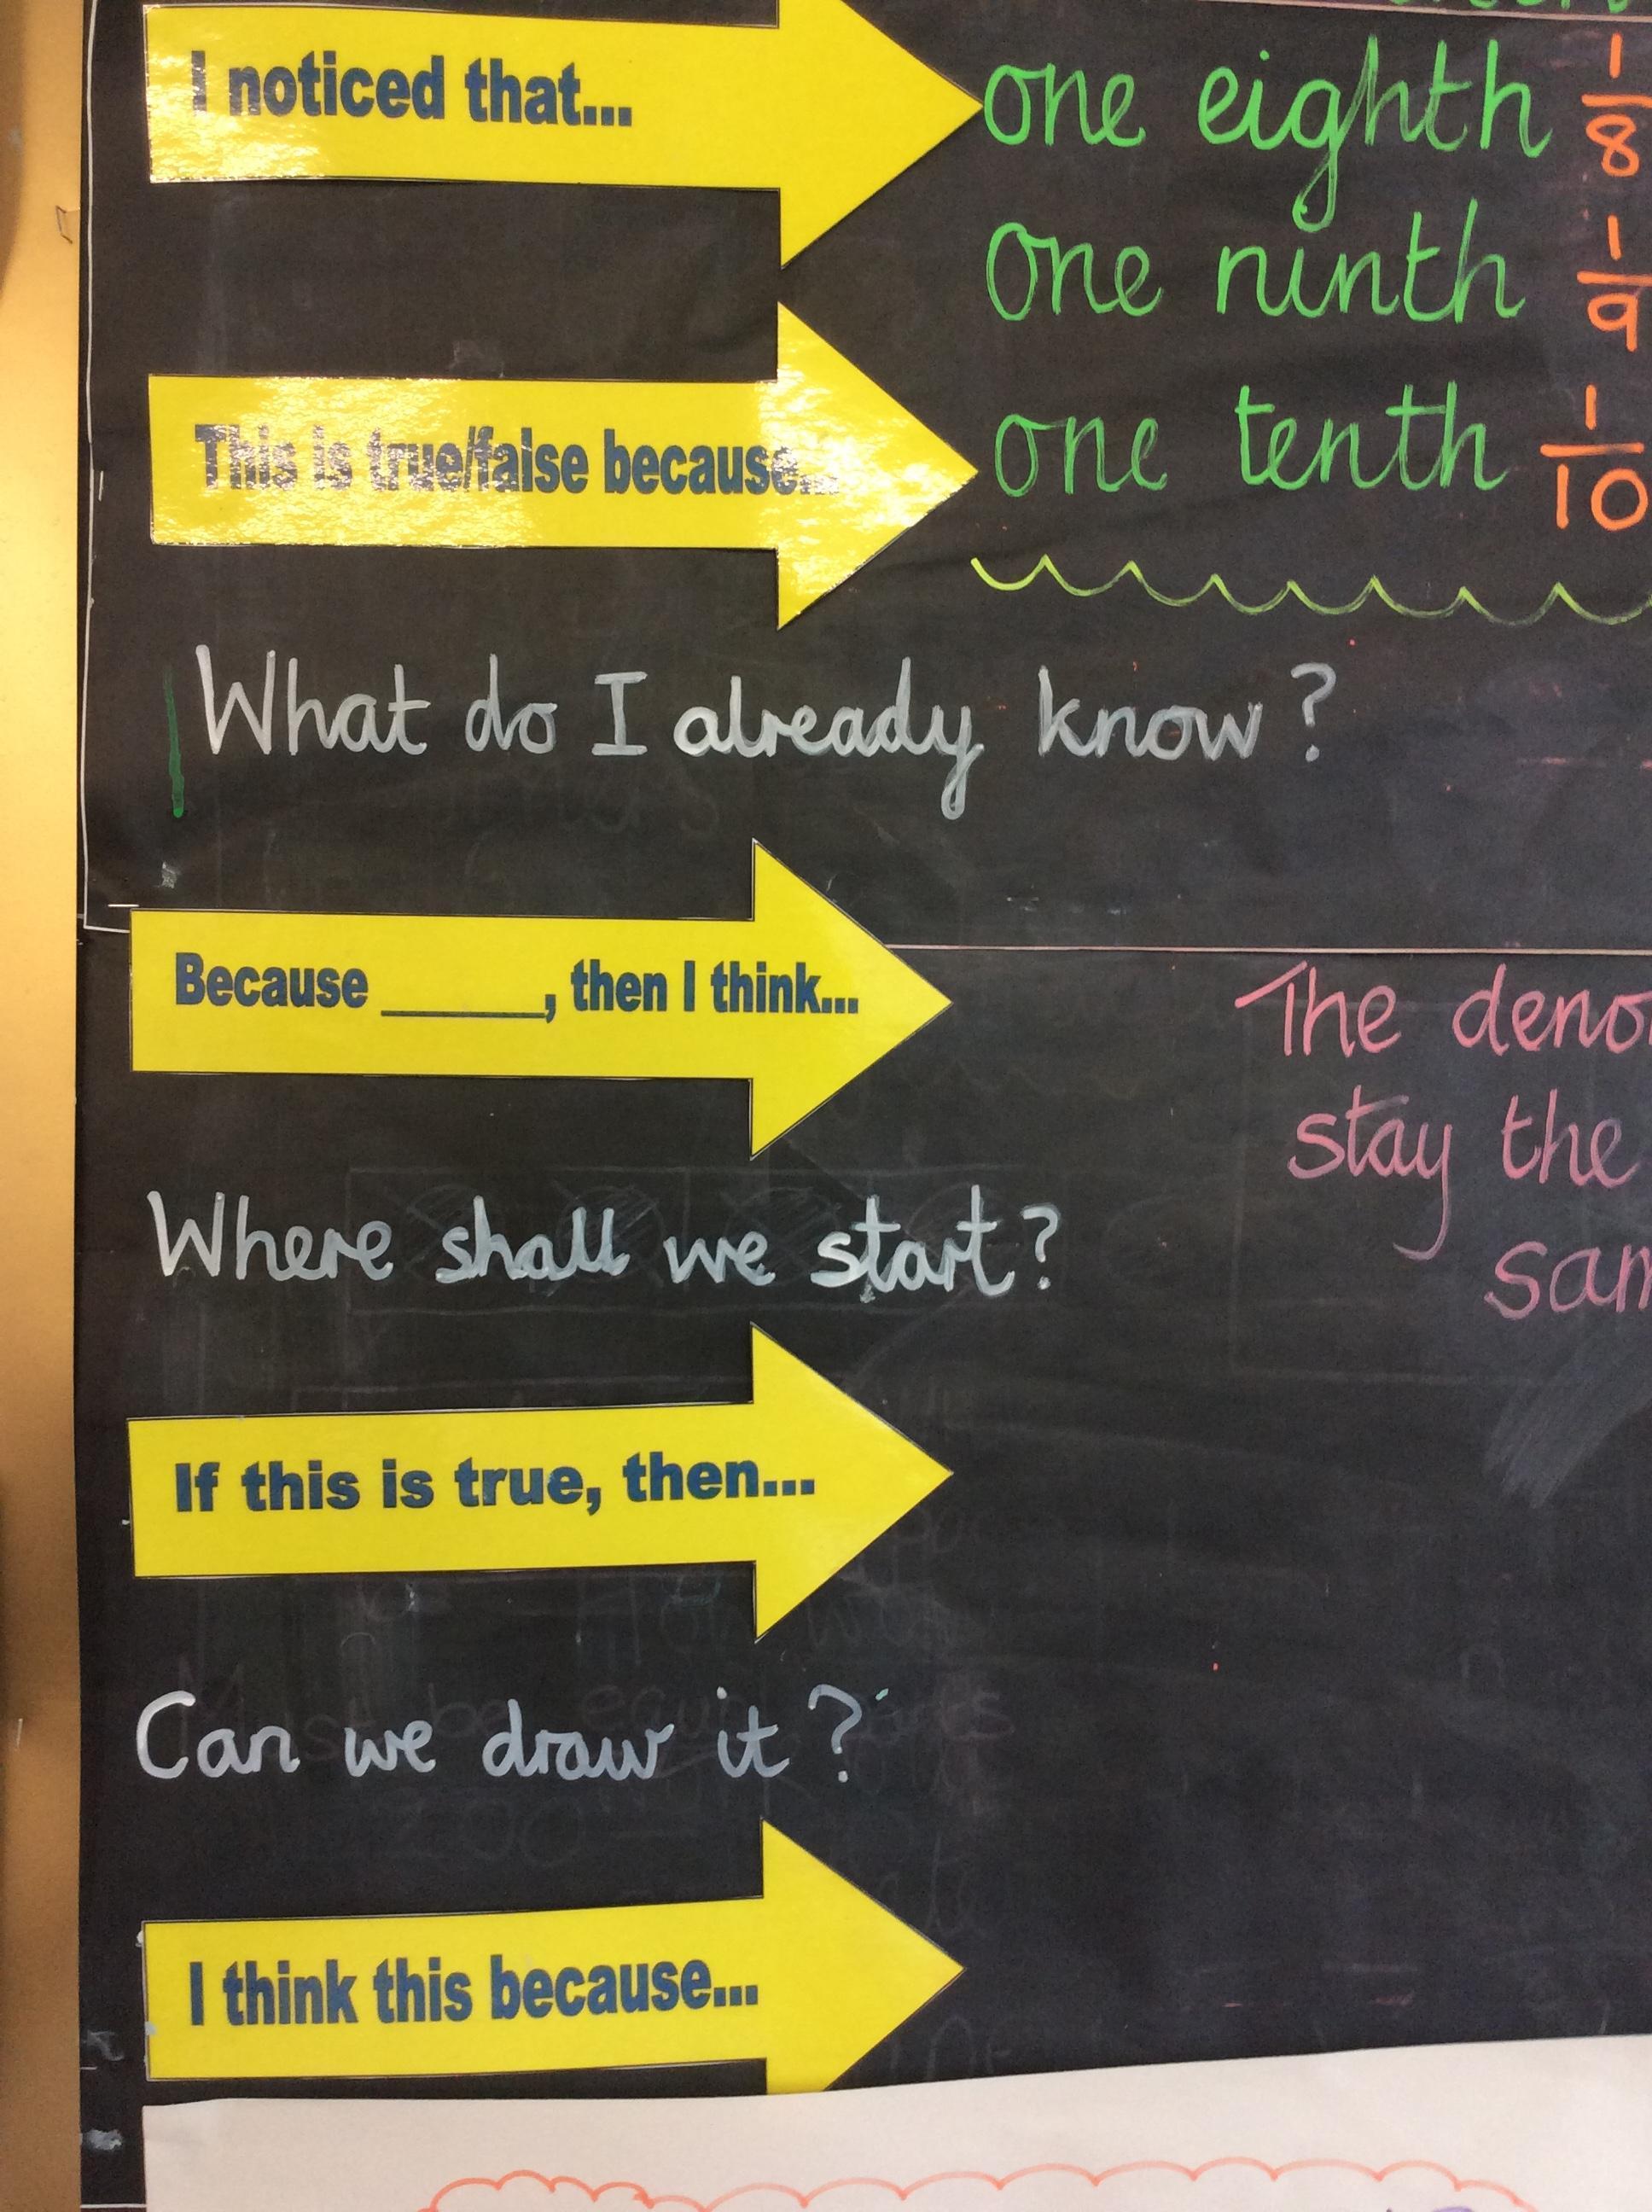 I noticed that...
one eighth 1/8
one ninth 1/9
This is true/false because...
one tenth 1/10
What do I already know?
Because ______, then I think...
The
stay the
Where shall we start?
If this is true, then...
Can we draw it?
I think this because...